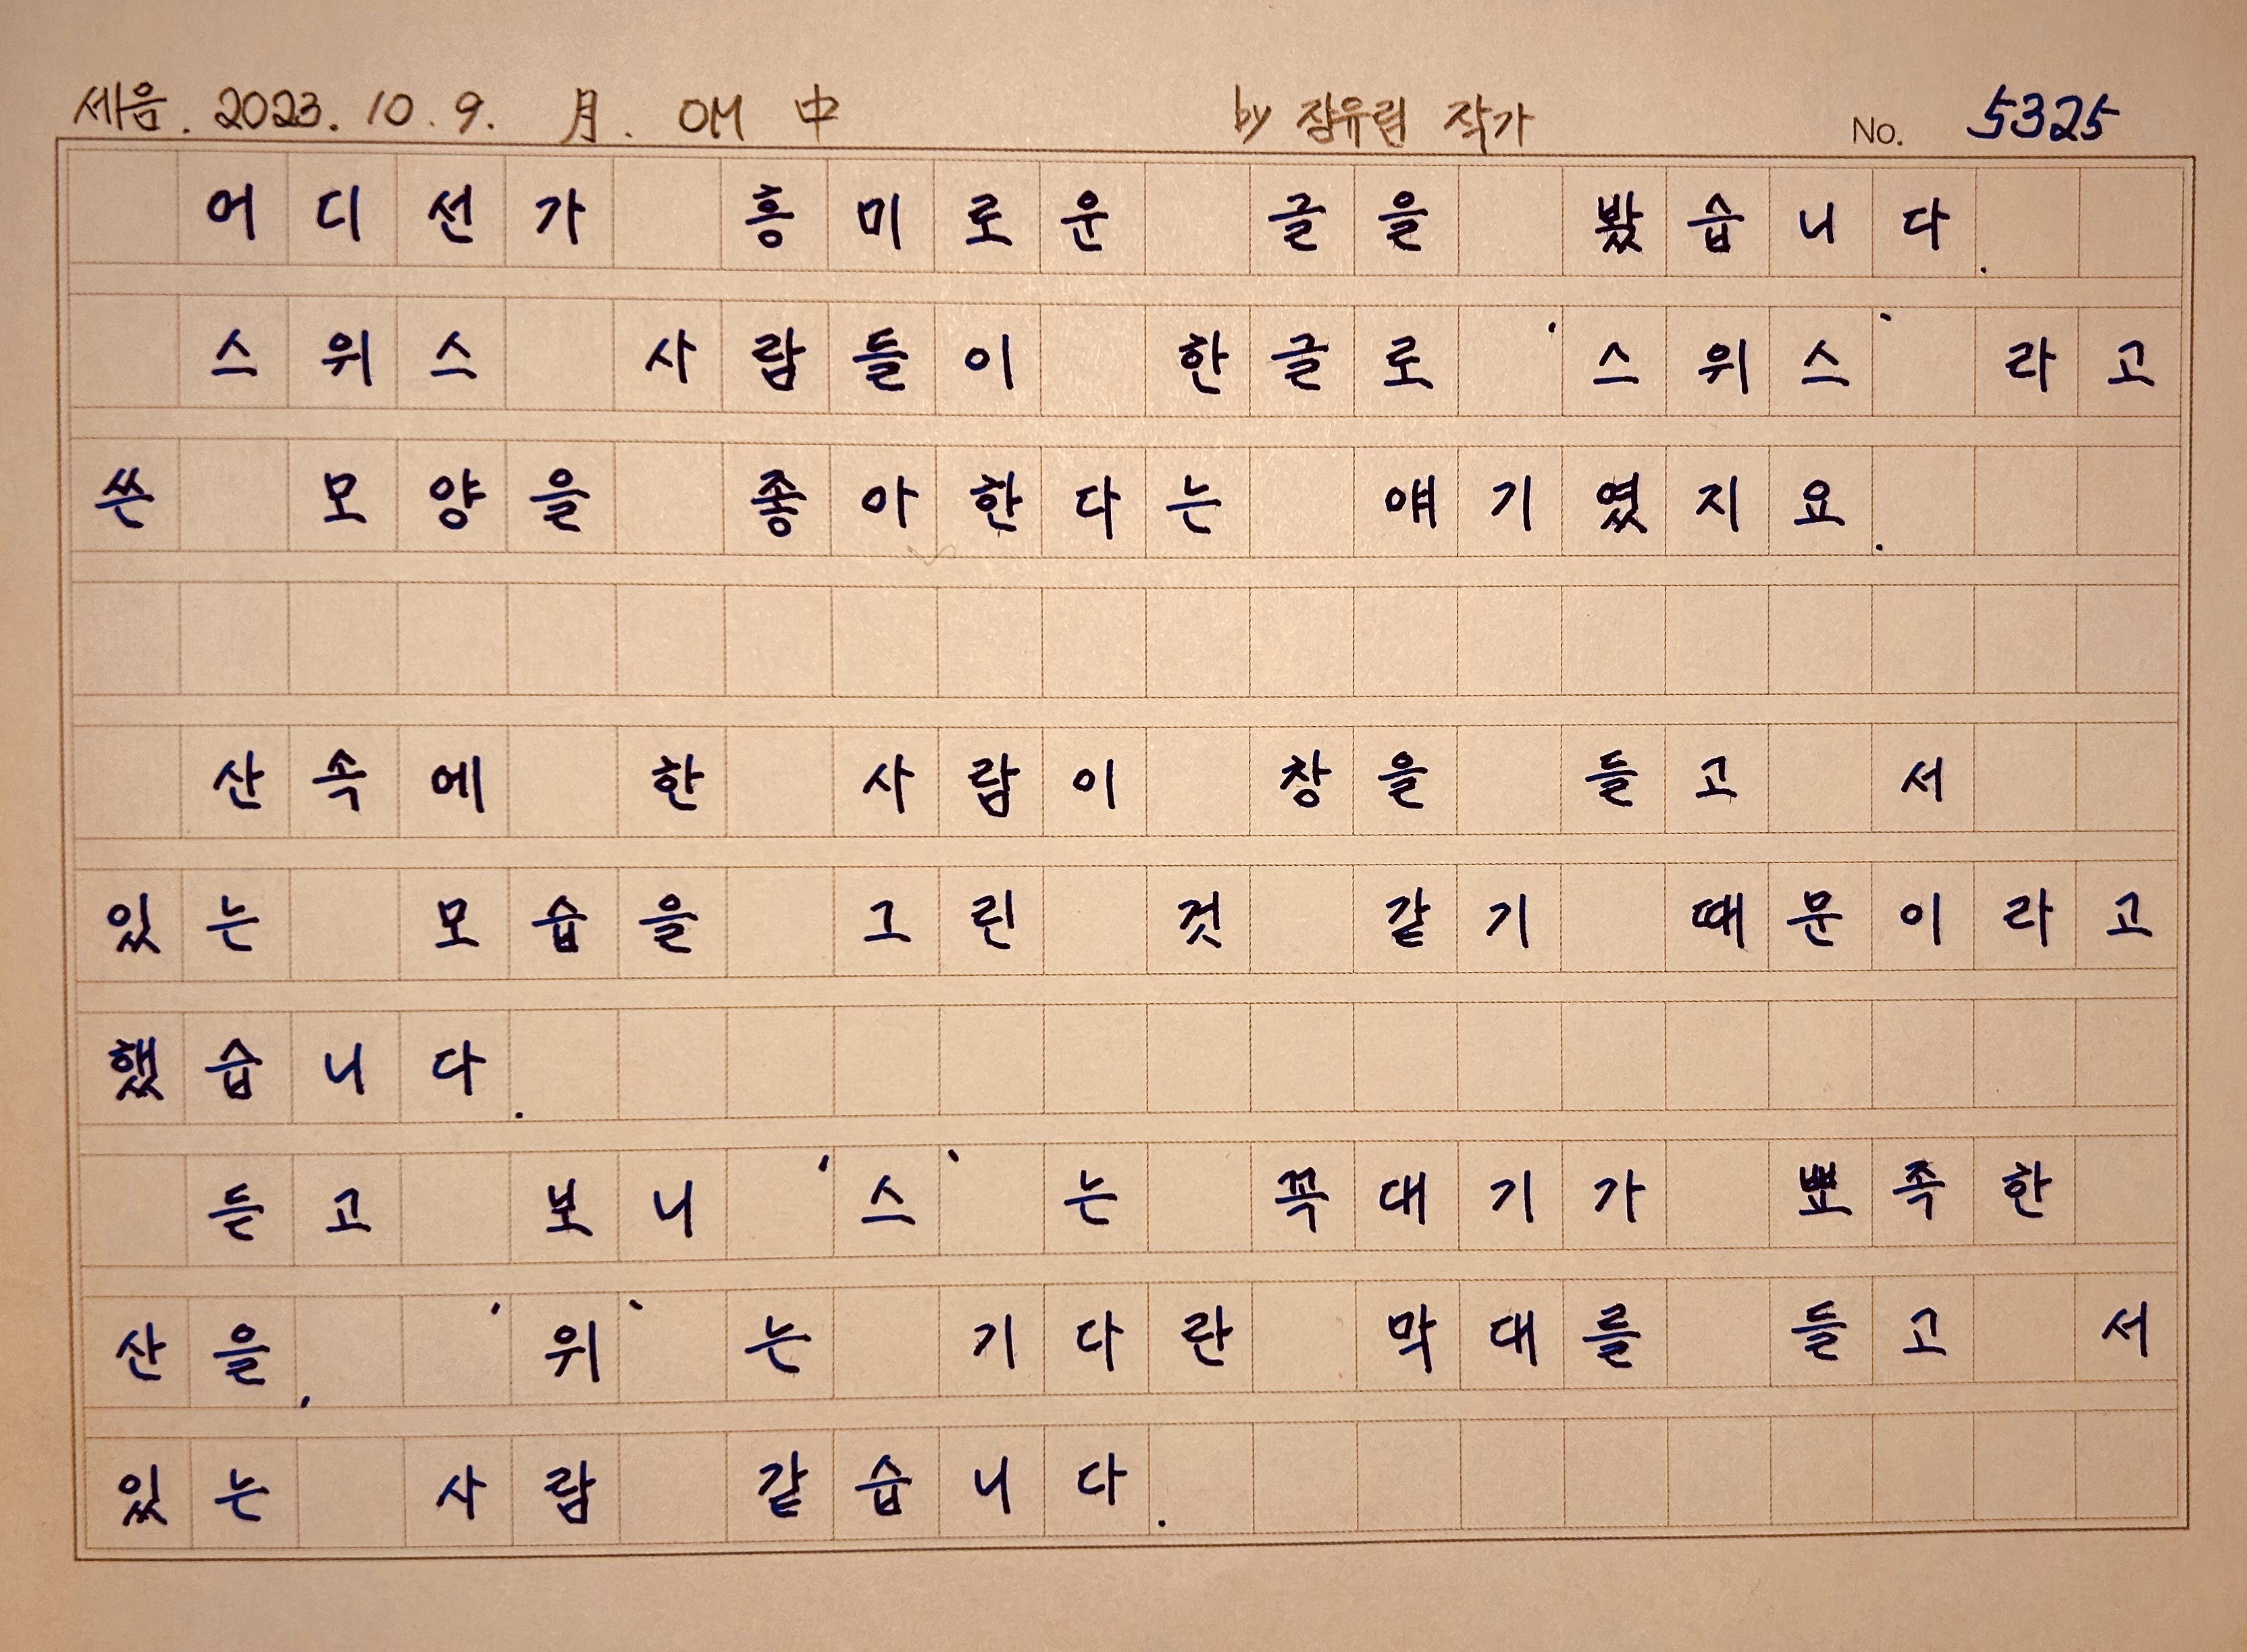 세음. 2023. 10. 9. 月. OM 中 by 장유림 작가 No. 5325
어디선가 흥미로운 글을 봤습니다.
스위스 사람들이 한글로 '스위스'라고
쓴 모양을 좋아한다는 얘기였지요.
산속에 한 사람이 창을 들고 서
있는 모습을 그린 것 같기 때문이라고
했습니다.
듣고 보니 '스'는 꼭대기가 뾰족한
산을, '위'는 기다란 막대를 들고 서
있는 사람 같습니다.